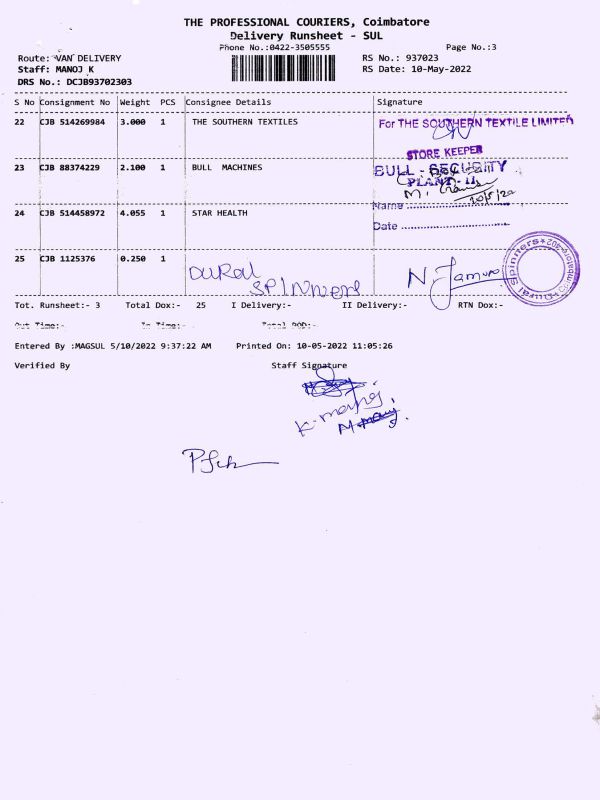 THE PROFESSIONAL COURIERS, Coimbatore
Delivery Runsheet - SUL
Phone No.:0422-3505555 Page No.:3
Route: VAN DELIVERY RS No.: 937023
Staff: MANOJ K RS Date: 10-May-2022
DRS No.: DCJB93702303
S No Consignment No Weight PCS Consignee Details Signature
22 CJB 514269984 3.000 1 THE SOUTHERN TEXTILES For THE SOUTHERN TEXTILE LIMITED
STORE KEEPER
23 CJB 88374229 2.100 1 BULL MACHINES BULL - SECURITY
PLANT - II
Name
10/5/22
24 CJB 514458972 4.055 1 STAR HEALTH
Date
25 CJB 1125376 0.250 1 DURAL
SPINNERS
Tot. Runsheet:- 3 Total Dox:- 25 I Delivery:- II Delivery:- RTN Dox:-
Out Time:- In Time:- Total POD:-
Entered By :MAGSUL 5/10/2022 9:37:22 AM Printed On: 10-05-2022 11:05:26
Verified By Staff Signature
K. manoj